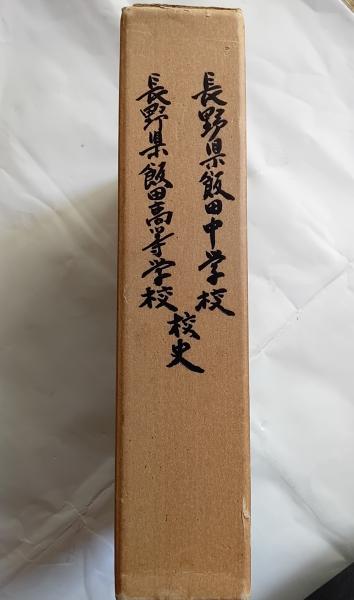 長野県飯田中学校
長野県飯田高等学校
校史